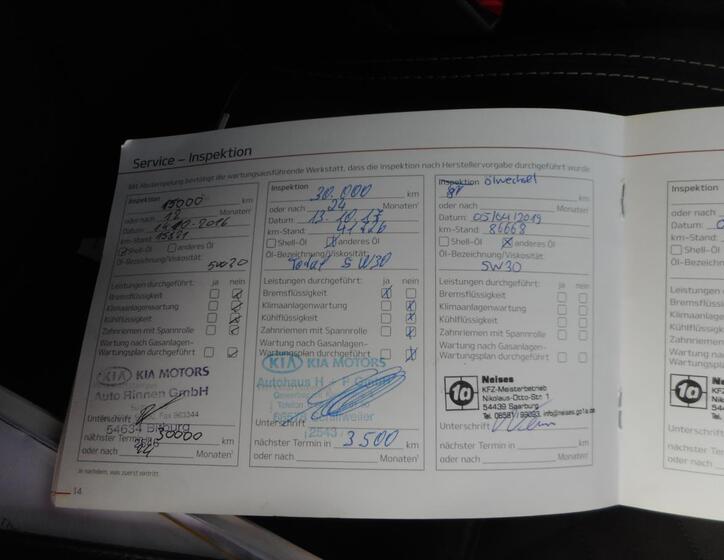 Service – Inspektion
Mit Abstempelung bestätigt die wartungsausführende Werkstatt, dass die Inspektion nach Herstellervorgabe durchgeführt wurde
Inspektion 15000 km
oder nach 12 Monaten¹
Datum:
km-Stand:
Shell-Öl anderes Öl
Öl-Bezeichnung/Viskosität:
5W30
Leistungen durchgeführt: ja nein
Bremsflüssigkeit
Klimaanlagenwartung
Kühlflüssigkeit
Zahnriemen mit Spannrolle
Wartung nach Gasanlagen-
Wartungsplan durchgeführt
KIA KIA MOTORS
Auto Rinnen GmbH
Unterschrift
54634 Bitburg
nächster Termin in 30000 km
oder nach 24 Monaten¹
Je nachdem, was zuerst eintritt.
14
Inspektion 30.000 km
oder nach 24 Monaten¹
Datum: 13.10.17
km-Stand:
Shell-Öl anderes Öl
Öl-Bezeichnung/Viskosität:
Total 5W30
Leistungen durchgeführt: ja nein
Bremsflüssigkeit
Klimaanlagenwartung
Kühlflüssigkeit
Zahnriemen mit Spannrolle
Wartung nach Gasanlagen-
Wartungsplan durchgeführt
KIA KIA MOTORS
Autohaus H + F GmbH
Telefon
Unterschrift
nächster Termin in 3500 km
oder nach Monaten¹
Inspektion Ölwechsel km
oder nach Monaten¹
Datum: 05/04/2019
km-Stand: 86668
Shell-Öl anderes Öl
Öl-Bezeichnung/Viskosität:
5W30
Leistungen durchgeführt: ja nein
Bremsflüssigkeit
Klimaanlagenwartung
Kühlflüssigkeit
Zahnriemen mit Spannrolle
Wartung nach Gasanlagen-
Wartungsplan durchgeführt
1a Neises
KFZ-Meisterbetrieb
Nikolaus-Otto-Str.
54439 Saarburg
Unterschrift
nächster Termin in km
oder nach Monaten¹
Inspektion
oder nach
Datum:
km-Stand:
Shell-Öl
Öl-Bezeichn
Leistungen d
Bremsflüssig
Klimaanlage
Kühlflüssigk
Zahnriemen
Wartung na
Wartungspl
1a
Unterschrift
nächster Te
oder nach